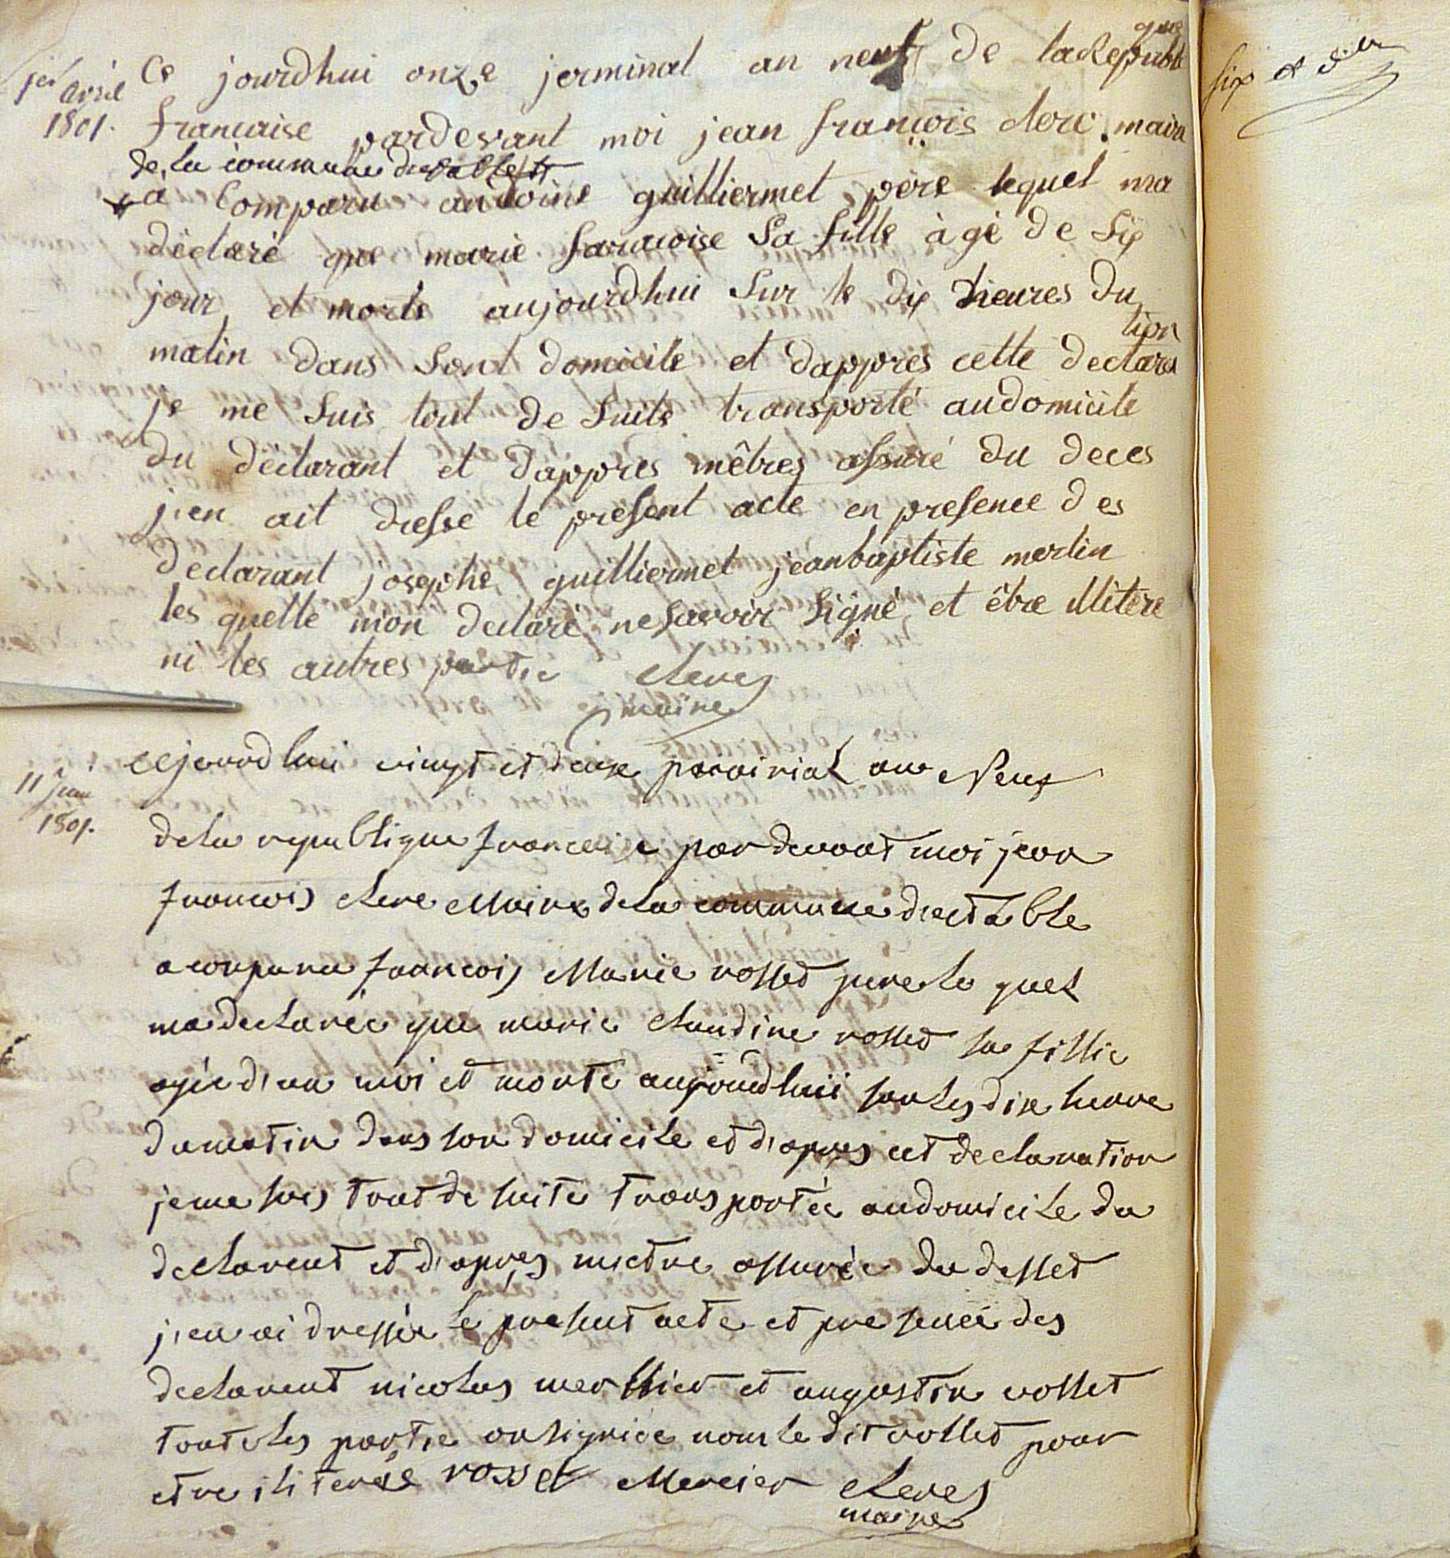 1er avril 1801.
Ce jourdhui onze jerminal an neuf de la Republique
francaise pardevant moi jean françois clerc maire
de la commune
a comparu antoine guilliermet père lequel ma
déclaré que marie francoise sa fille àgé de six
jour et morte aujourdhui sur le dix hieures du
matin dans sont domicile et dappres cette declaration
je me suis tout de suite transporté audomicile
du déclarant et dappres mêtres assuré du deces
j'ien ait dresse le present acte en presence des
declarant josephe guilliermet jeanbaptiste merlin
les quelle mon declaré ne savoir signé et être illitere
ni les autres partie clerc
maire
11 juin 1801.
cejourdhui vingt et deux prairial an neuf
dela republique francaise pardevant moi jean
francois clerc maire dela commune d'estable
acomparu francois marie rosset pere le quel
ma declarée que marie claudine rosset sa fillie
agée d'un moi et morte aujourdhuii sur les dix heure
dumatin dans son domicile et d'apres cet declaration
jeme suis tout de suite transportée audomicile du
declarent et d'apres mettre assurée du desset
j'en ai dressée le present acte et presence des
declarent nicolas mersier et augustin rosset
toutes les partie on signiée nom le dit rosset pour
etre iliterée rosset Mercier clerc
maire
six et